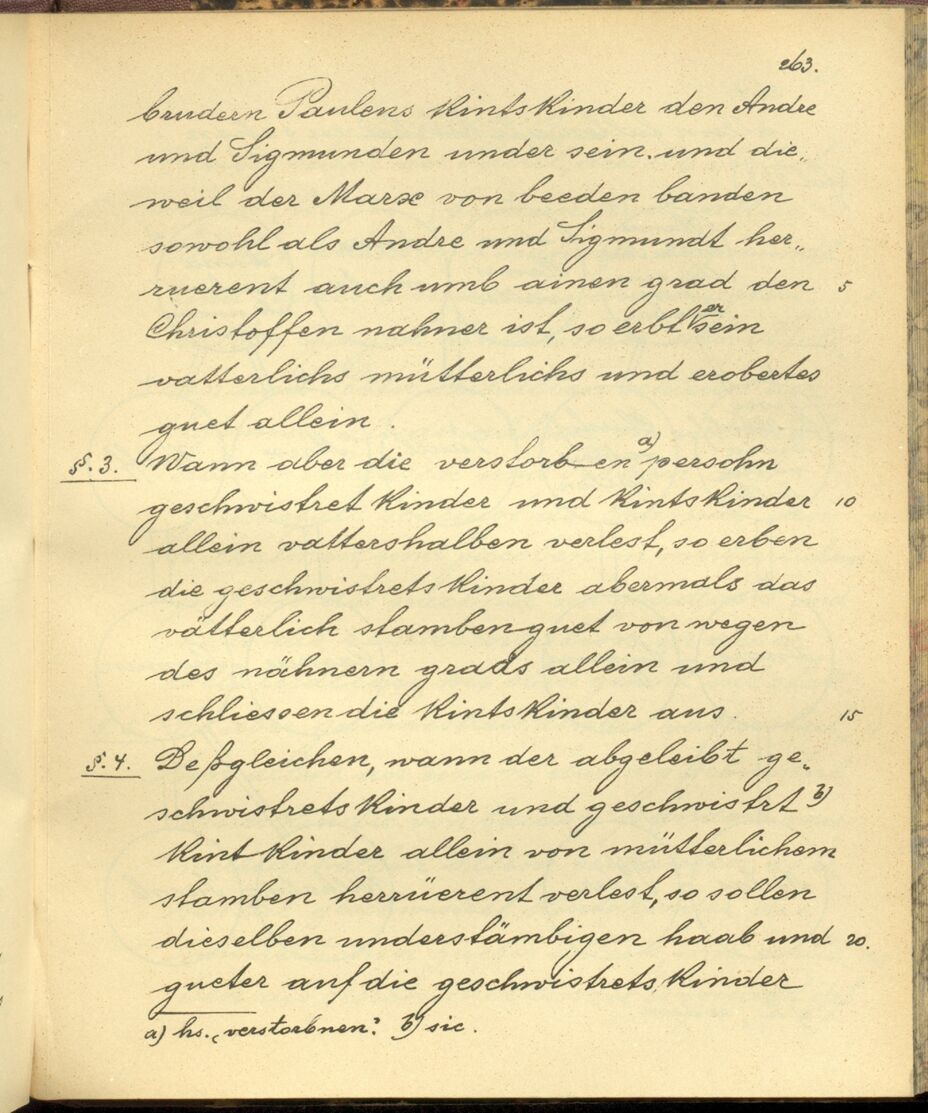 263.
brudern Paulens kintskinder den Andre
und Sigmunden under sein. und die„
weil der Marx von beeden banden
sowohl als Andre und Sigmundt her„
ruerent auch umb ainen grad den 5
Christoffen nahner ist, so erbt er sein
vatterlichs mütterlichs und erobertes
guet allein.
§. 3. Wann aber die verstorben a) persohn
geschwistret kinder und kintskinder 10
allein vattershalben verlest, so erben
die geschwistrets kinder abermals das
vätterlich stamben guet von wegen
des nähnern grads allein und
schliessen die kintskinder aus. 15
§. 4. Deßgleichen, wann der abgeleibt ge„
schwistrets kinder und geschwistrt b)
kint kinder allein von mütterlichem
stamben herrüerent verlest, so sollen
dieselben understämbigen haab und 20.
gueter auf die geschwistrets kinder
a) hs. „verstorbnen“. b) sic.